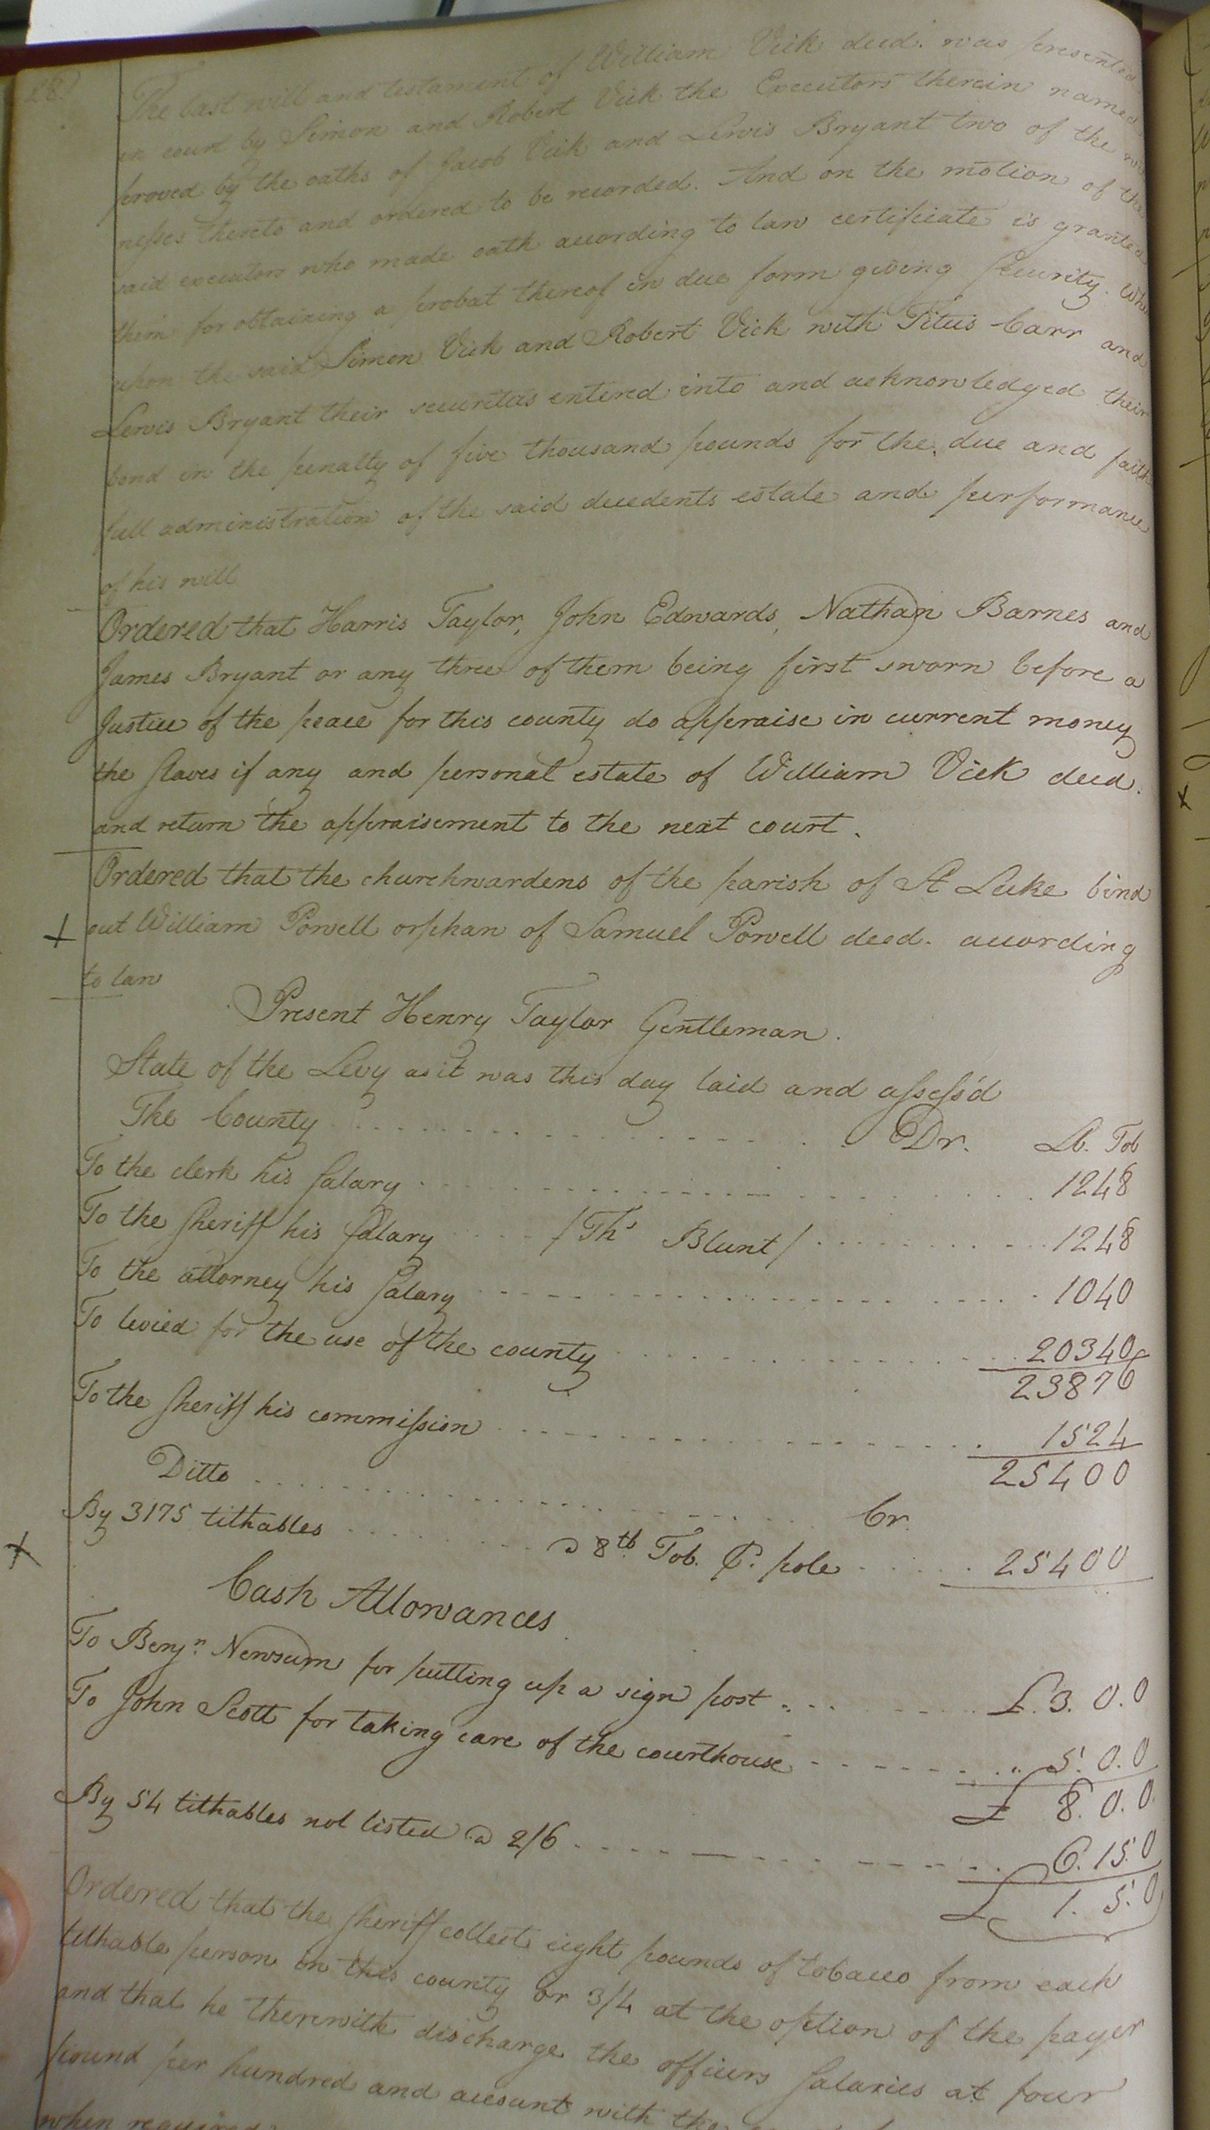 28
The last will and testament of William Vick decd. was presented
in court by Simon and Robert Vick the Executors therein named
proved by the oaths of Jacob Vick and Lewis Bryant two of the wit
nesses thereto and ordered to be recorded. And on the motion of the
said executors who made oath according to law certificate is granted
them for obtaining a probat thereof in due form giving security. Where
upon the said Simon Vick and Robert Vick with Titus Carr and
Lewis Bryant their securities entered into and acknowledged their
bond in the penalty of five thousand pounds for the due and faith
full administration of the said decedents estate and performance
of his will
Ordered that Harris Taylor, John Edwards, Nathan Barnes and
James Bryant or any three of them being first sworn before a
Justice of the peace for this county do appraise in current money
the slaves if any and personal estate of William Vick decd.
and return the appraisement to the next court.
Ordered that the churchwardens of the parish of St Luke bind
out William Powell orphan of Samuel Powell decd. according
to law
Present Henry Taylor Gentleman.
State of the Levy as it was this day laid and assess'd
The County Dr. Lb. Tob
To the clerk his salary 1248
To the sheriff his salary /Ths Blunt/ 1248
To the attorney his salary 1040
To levied for the use of the county 20340
23876
To the sheriff his commission 1524
25400
Ditto Cr.
By 3175 tithables @ 8lb. Tob. P. pole 25400
Cash Allowances
To Benjn. Newsum for putting up a sign post £.3.0.0
To John Scott for taking care of the courthouse 5.0.0
£ 8.0.0.
By 54 tithables not listed @ 2/6 6.15.0
£ 1.5.0
Ordered that the sheriff collect eight pounds of tobacco from each
tithable person in this county or 3/4 at the option of the payer
and that he therewith discharge the officers salaries at four
pound per hundred and account with the
when required